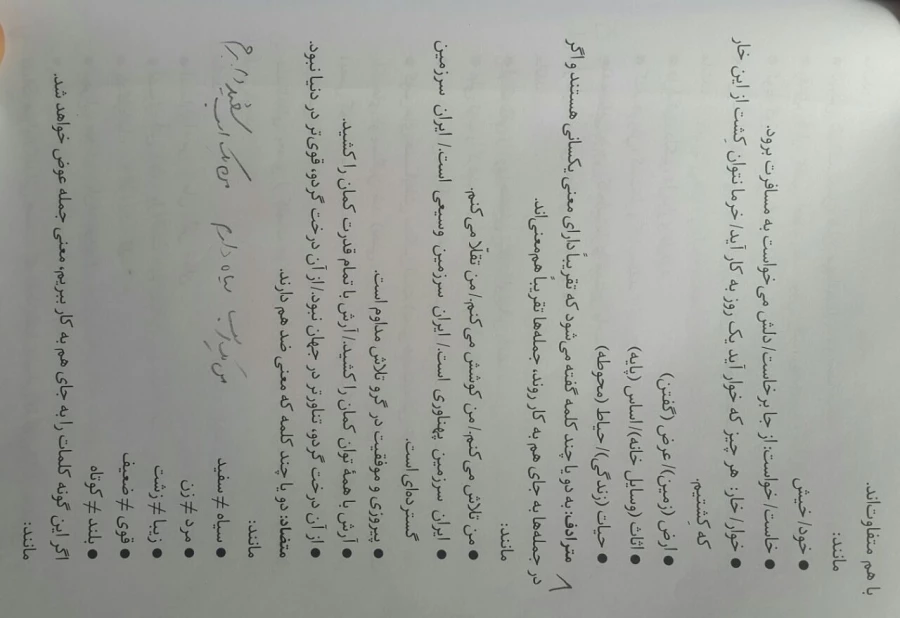 با هم متفاوت‌اند.
مانند:
● خود/ خیش
● خاست/ خواست: از جا برخاست/ دلش می‌خواست به مسافرت برود.
● خوار/ خار: هر چیز که خوار آید یک روز به کار آید/ خرما نتوان کِشت از این خار
که کِشتیم.
● ارض (زمین)/ عرض (گفتن)
● اثاث (وسایل خانه)/ اساس (پایه)
● حیات (زندگی)/ حیاط (محوطه)
مترادف: به دو یا چند کلمه گفته می‌شود که تقریباً دارای معنی یکسانی هستند و اگر
در جمله‌ها به جای هم به کار روند، جمله‌ها تقریباً هم‌معنی‌اند.
مانند:
● من تلاش می‌کنم./ من کوشش می‌کنم./ من تقلّا می‌کنم.
● ایران سرزمین پهناوری است./ ایران سرزمین وسیعی است./ ایران سرزمین
گسترده‌ای است.
● پیروزی و موفقیت در گرو تلاش مداوم است.
● آرش با همهٔ توان کمان را کشید./ آرش با تمام قدرت کمان را کشید.
● از آن درخت گردو، تناورتر در جهان نبود./ از آن درخت گردو، قوی‌تر در دنیا نبود.
متضاد: دو یا چند کلمه که معنی ضد هم دارند.
مانند:
● سیاه ≠ سفید من یک اسب سیاه دارم من یک اسب سفید دارم
● مرد ≠ زن
● زیبا ≠ زشت
● قوی ≠ ضعیف
● بلند ≠ کوتاه
اگر این گونه کلمات را به جای هم به کار ببریم، معنی جمله عوض خواهد شد.
مانند: